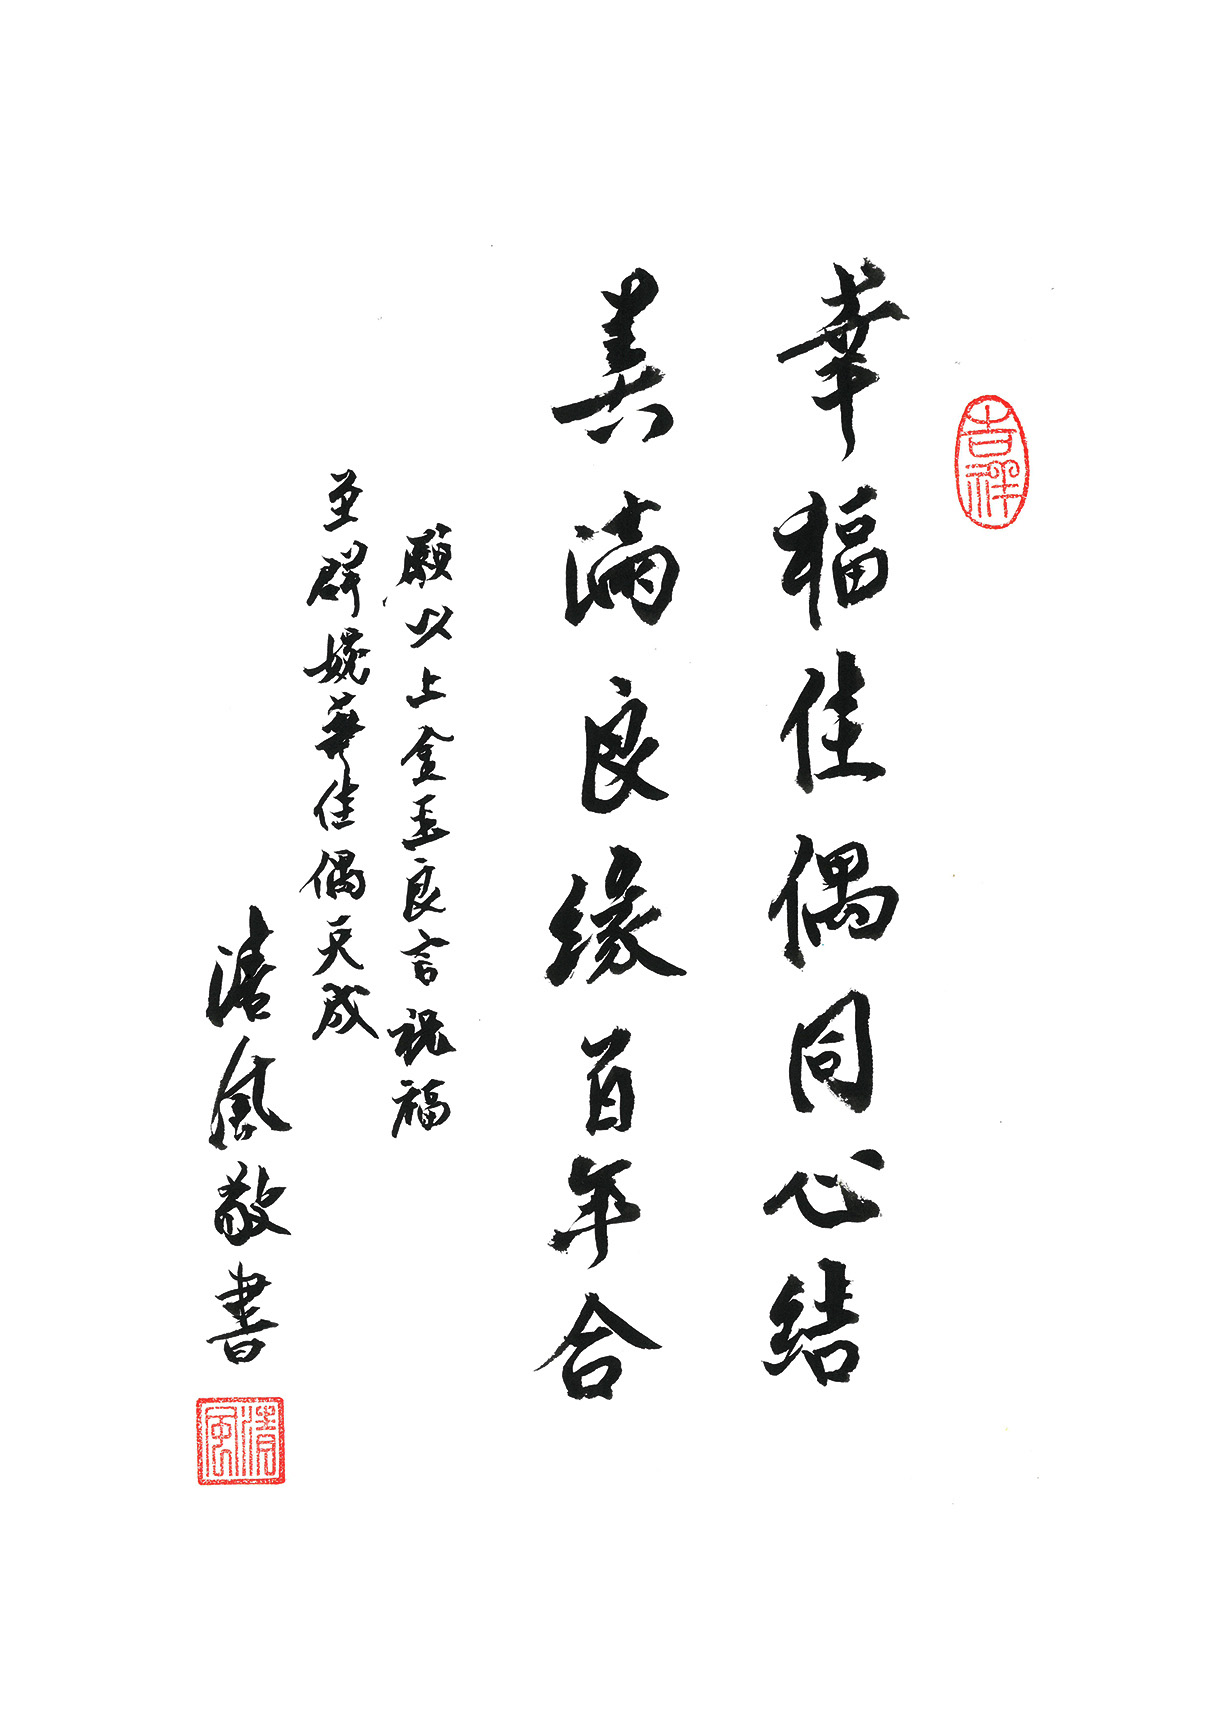 吉祥
幸福佳偶同心结
美满良缘百年合
願以上金玉良言祝福
群婉華佳偶天成
清風敬書
清風